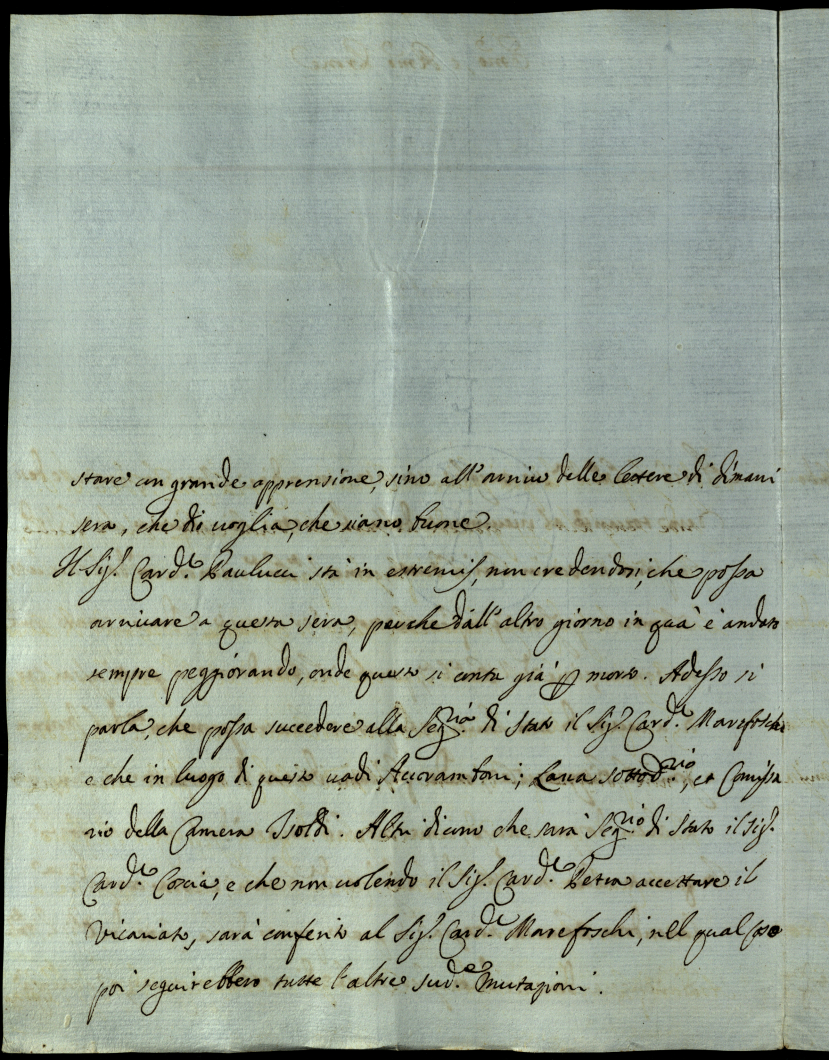 stare in grande apprensione, sino all'arrivo delle lettere di dimani
sera, che dio voglia, che siano buone.
Il Sig.r Card.le Paulucci stà in estremis, non credendosi, che possa
arrivare a questa sera, perche dall'altro giorno in quà è andato
sempre peggiorando, onde questo si conta già p morto. Adesso si
parla, che possa succedere alla Seg.ria di Stato il Sig.r Card.le Marefoschi
e che in luogo di questo vadi Accoramboni; Lana sottod.rio, et Comissa
rio della Camera Isoldi. Altri dicono che sarà Seg.rio di Stato il Sig.r
Card.le Coscia, e che non volendo il Sig.r Card.le Petra accettare il
Vicariato, sarà conferito al Sig.r Card.le Marefoschi, nel qual caso
poi seguirebbero tutte l'altre sud.e mutazioni.